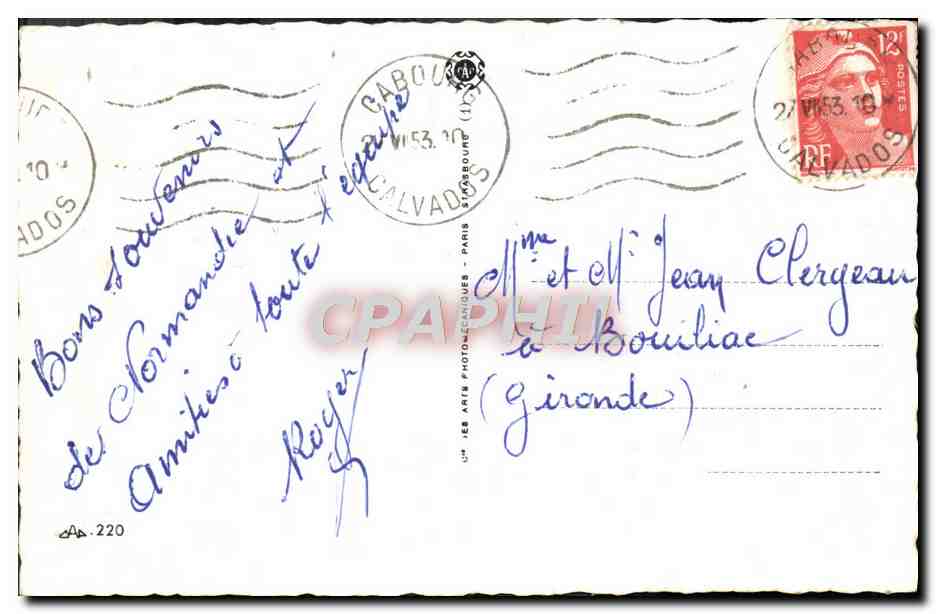 Bons souvenirs
de Normandie et
Amitiés à toute l'équipe
Roger
CABOURG
VII 53. 10
CALVADOS
CAP
Cie DES ARTS PHOTOMÉCANIQUES - PARIS STRASBOURG
12F
POSTES
RF
27 VII 53. 10
CALVADOS
10
Mme et Mr Jean Clergeau
à Bouiliac
(Gironde)
CPAPHIL
CAP. 220